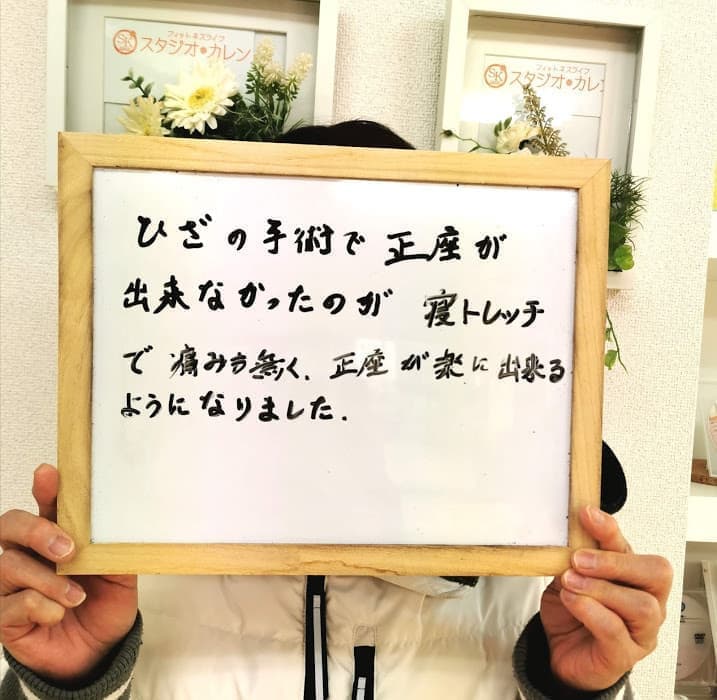 フィットネスライフ
スタジオ・カレン
フィットネスライフ
スタジオ・カレン
ひざの手術で正座が
出来なかったのが 寝トレッチ
で痛みも無く、正座が楽に出来る
ようになりました.